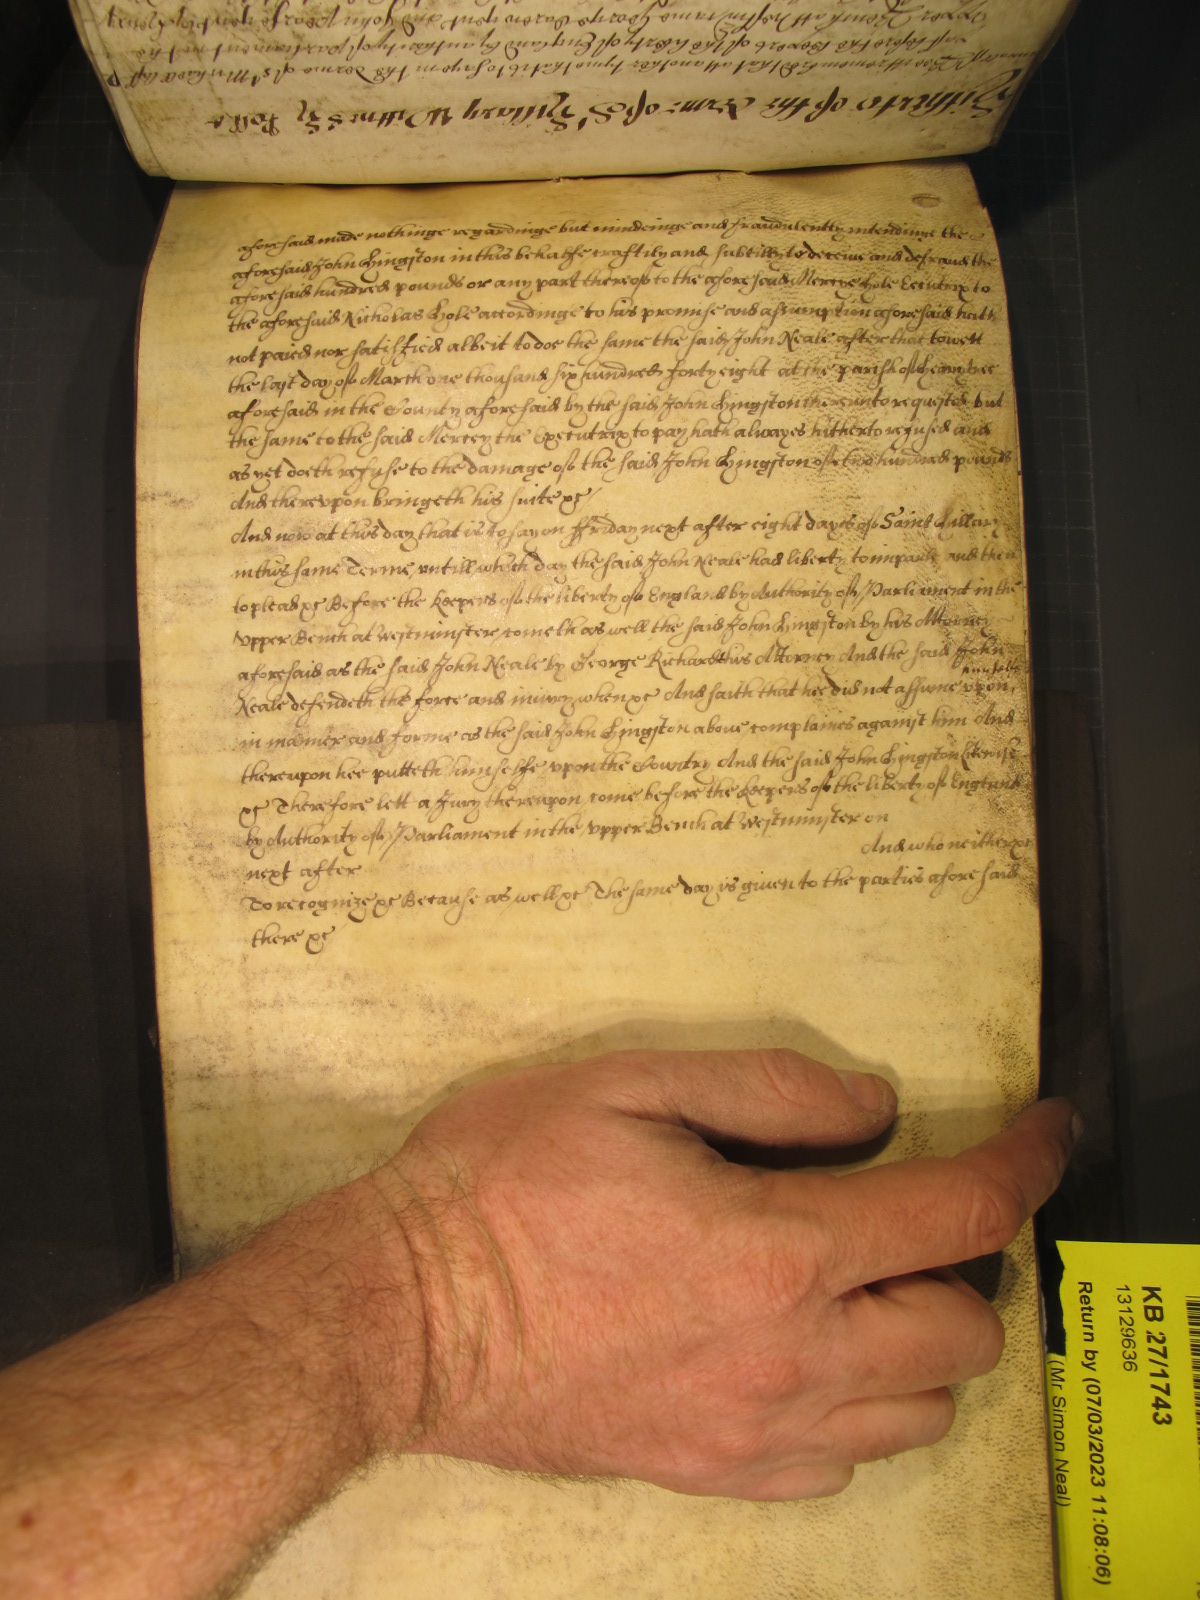 Hitherto of the Terme of St Hillary Wittnes Hy Rolle
aforesaid made nothinge regardinge but mindeinge and fraudulently intendinge the
aforesaid John Hingston in this behalfe craftily and subtilly to deceive and defraud the
aforesaid hundred pounds or any part thereof to the aforesaid Mercye Hole Executrix to
the aforesaid Nicholas Hole accordinge to his promise and assumption aforesaid hath
not paied nor satisfied albeit to doe the same the said John Neale after that to witt
the last day of March one thousand six hundred forty eight at the parish of Heavytree
aforesaid in the County aforesaid by the said John Hingston thereunto requested but
the same to the said Mercey the Executrix to pay hath alwayes hitherto refused and
as yet doeth refuse to the damage of the said John Hingston of two hundred pounds
And thereupon bringeth his suite &c
And now at this day that is to say on Ffriday next after eight dayes of Saint Hillary
in this same Terme, untill which day the said John Neale had liberty to imparle and then
to plead &c Before the Keepers of the liberty of England by Authority of Parliament in the
Upper Bench at Westminster cometh as well the said John Hingston by his Attorney
aforesaid as the said John Neale by George Richards his Attorney And the said John
Neale defendeth the force and iniury when &c And saith that hee did not assume upon himselfe
in manner and forme as the said John Hingston above complaines against him And
thereupon hee putteth himselfe upon the Country And the said John Hingston likewise
&c Therefore lett a Jury thereupon come before the Keepers of the liberty of England
by Authority of Parliament in the upper Bench at Westminster on
next after And who neither &c
To recognize &c Because as well &c The same day is given to the parties aforesaid
there &c
KB 27/1743
13129636
Return by (07/03/2023 11:08:06)
(Mr Simon Neal)